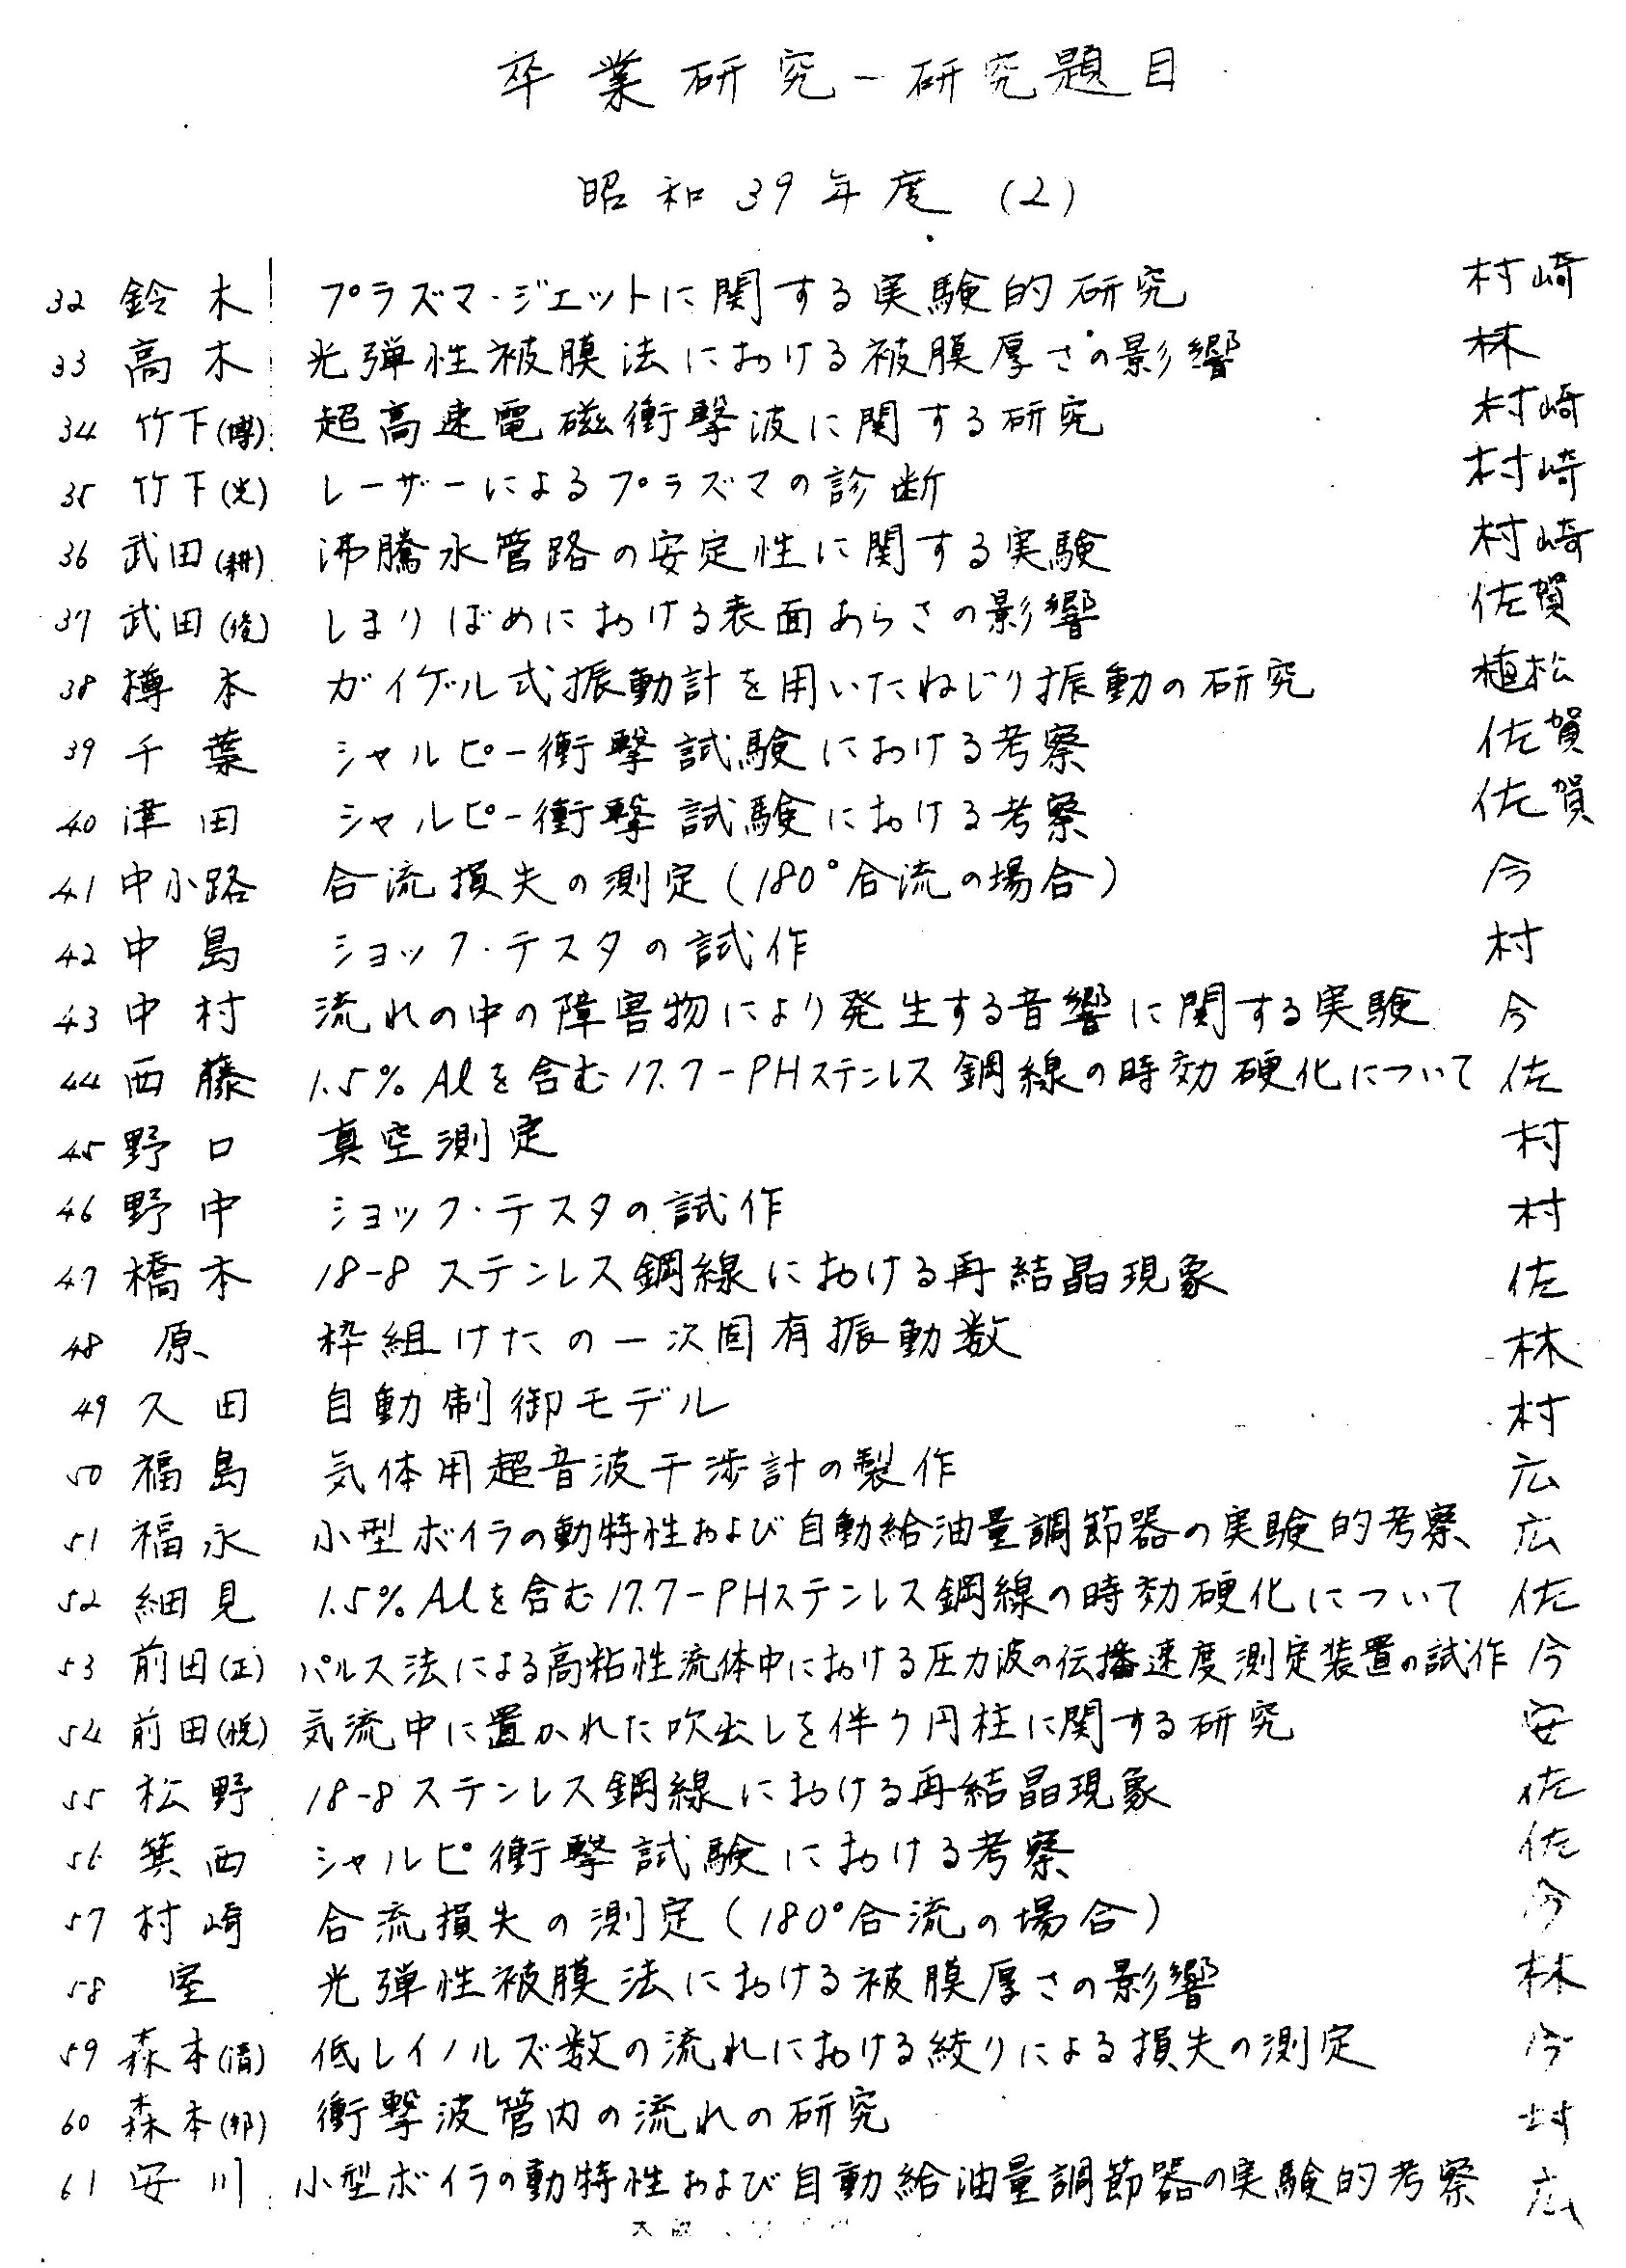 卒業研究－研究題目
昭和39年度 (2)
32 鈴木 プラズマ・ジェットに関する実験的研究 村崎
33 高木 光弾性被膜法における被膜厚さの影響 林
34 竹下(博) 超高速電磁衝撃波に関する研究 村崎
35 竹下(光) レーザーによるプラズマの診断 村崎
36 武田(耕) 沸騰水管路の安定性に関する実験 村崎
37 武田(俊) しまりばめにおける表面あらさの影響 佐賀
38 樽本 ガイゲル式振動計を用いたねじり振動の研究 植松
39 千葉 シャルピー衝撃試験における考察 佐賀
40 津田 シャルピー衝撃試験における考察 佐賀
41 中小路 合流損失の測定(180°合流の場合) 今
42 中島 ショック・テスタの試作 村
43 中村 流れの中の障害物により発生する音響に関する実験 今
44 西藤 1.5% Alを含む17.7-PHステンレス鋼線の時効硬化について 佐
45 野口 真空測定 村
46 野中 ショック・テスタの試作 村
47 橋本 18-8 ステンレス鋼線における再結晶現象 佐
48 原 枠組けたの一次固有振動数 林
49 久田 自動制御モデル 村
50 福島 気体用超音波干渉計の製作 広
51 福永 小型ボイラの動特性および自動給油量調節器の実験的考察 広
52 細見 1.5% Alを含む17.7-PHステンレス鋼線の時効硬化について 佐
53 前田(正) パルス法による高粘性流体中における圧力波の伝播速度測定装置の試作 今
54 前田(悦) 気流中に置かれた吹出しを伴う円柱に関する研究 安
55 松野 18-8ステンレス鋼線における再結晶現象 佐
56 箕西 シャルピ衝撃試験における考察 佐
57 村崎 合流損失の測定(180°合流の場合) 今
58 室 光弾性被膜法における被膜厚さの影響 林
59 森本(清) 低レイノルズ数の流れにおける絞りによる損失の測定 今
60 森本(邦) 衝撃波管内の流れの研究 村
61 安川 小型ボイラの動特性および自動給油量調節器の実験的考察 広